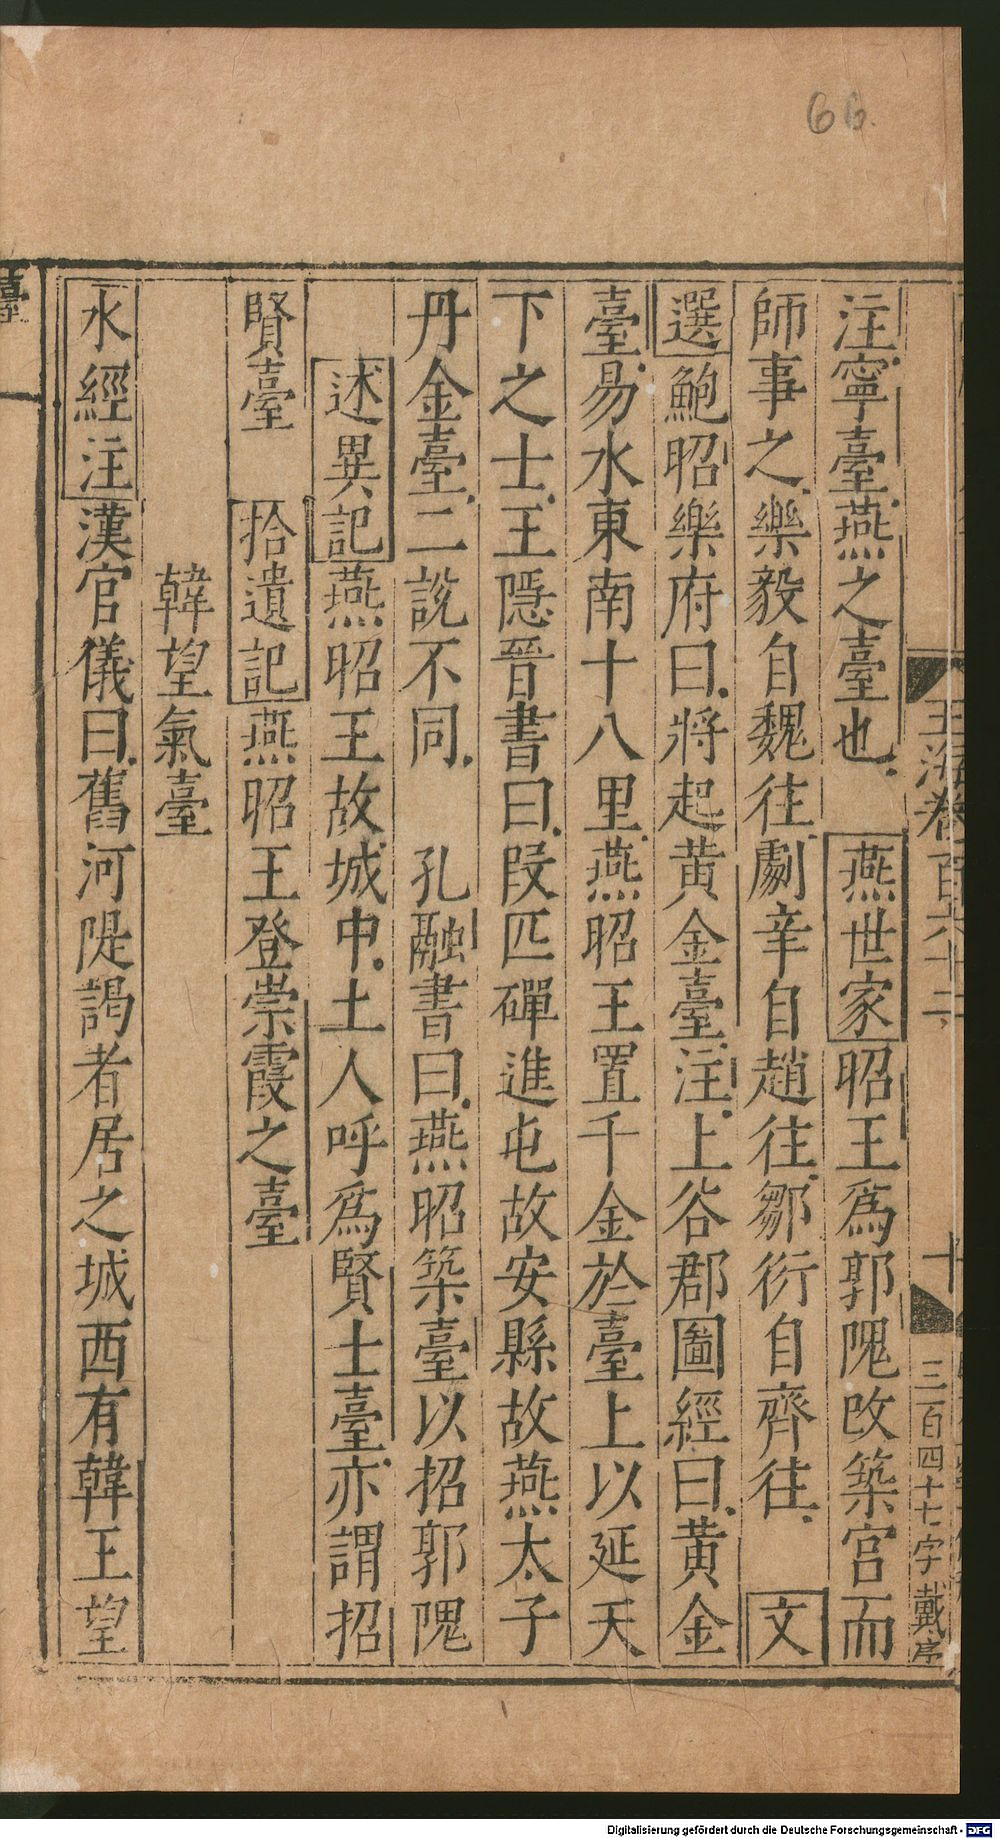 66.
玉海卷百六十二
十
三百四十七字戴序
注寧臺燕之臺也 燕世家昭王爲郭隗改築宮而
師事之樂毅自魏往劇辛自趙往鄒衍自齊往 文
選鮑昭樂府曰將起黄金臺注上谷郡圖經曰黄金
臺易水東南十八里燕昭王置千金於臺上以延天
下之士王隱晉書曰段匹磾進屯故安縣故燕太子
丹金臺二説不同 孔融書曰燕昭築臺以招郭隗
述異記燕昭王故城中土人呼爲賢士臺亦謂招
賢臺 拾遺記燕昭王登崇霞之臺
韓望氣臺
水經注漢官儀曰舊河隄謁者居之城西有韓王望
臺
Digitalisierung gefördert durch die Deutsche Forschungsgemeinschaft - DFG